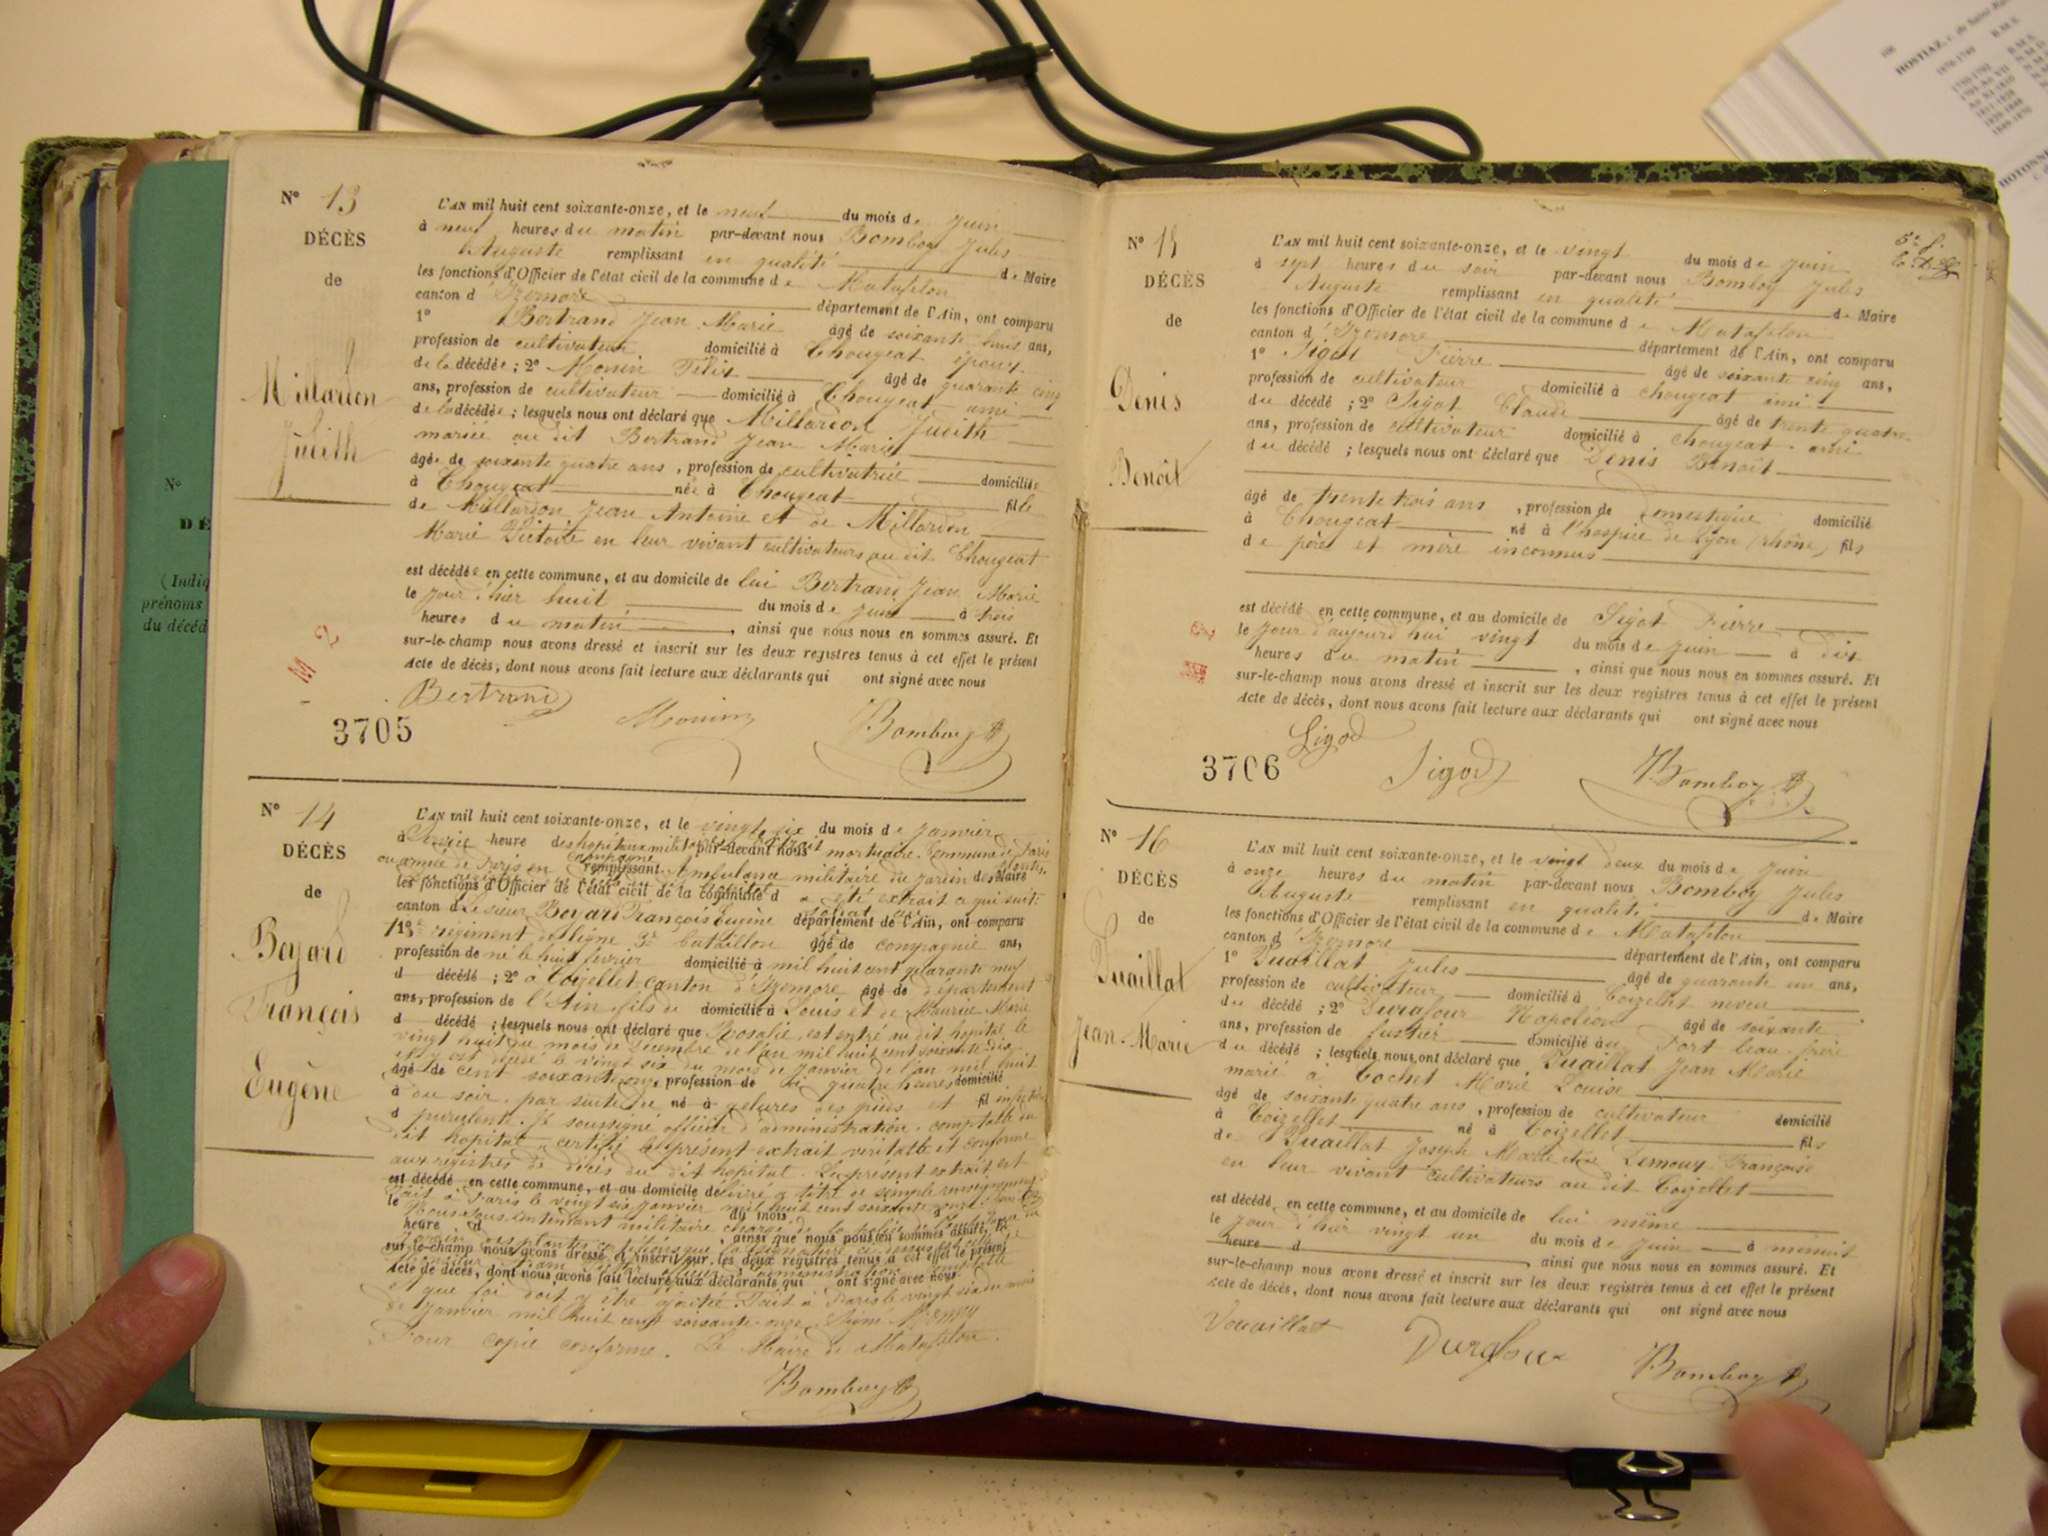 N° 13
DÉCÈS
de
Millardon
Judith
L'AN mil huit cent soixante-onze, et le neuf du mois de Juin
à neuf heures du matin par-devant nous Bomboy Jules
Auguste remplissant en qualité de Maire
les fonctions d'Officier de l'état civil de la commune de Matafelon
canton d'Izernore département de l'Ain, ont comparu
1° Bertrand Jean Marie âgé de soixante ans,
profession de cultivateur domicilié à Chougeat époux
de la décédée ; 2° Monin Félix âgé de quarante cinq
ans, profession de cultivateur domicilié à Chougeat ami
de la décédée ; lesquels nous ont déclaré que Millardon Judith
mariée au dit Bertrand Jean Marie
âgée de soixante quatre ans, profession de cultivatrice domiciliée
à Chougeat née à Chougeat fille
de Millardon Jean Antoine et de Millardon
Marie Victoire en leur vivant cultivateurs au dit Chougeat
est décédée en cette commune, et au domicile de lui Bertrand Jean Marie
le jour d'hier huit du mois de Juin à trois
heures du matin, ainsi que nous nous en sommes assuré. Et
sur-le-champ nous avons dressé et inscrit sur les deux registres tenus à cet effet le présent
Acte de décès, dont nous avons fait lecture aux déclarants qui ont signé avec nous
Bertrand Monin Bomboy
3705
N° 14
DÉCÈS
de
Boyard
François
Eugène
L'AN mil huit cent soixante-onze, et le vingt six du mois de Janvier
à heure des hôpitaux militaires par-devant nous extrait mortuaire Commune de Paris
armée de Paris en campagne remplissant Ambulance militaire du jardin des plantes de Maire
les fonctions d'Officier de l'état civil de la commune d a été extrait ce qui suit
canton d Le sieur Boyard François Eugène département de l'Ain, ont comparu
1° régiment de ligne 3e bataillon âgé de compagnie ans,
profession de né le huit février domicilié à mil huit cent quarante neuf
d décédé ; 2° à Coizellet canton d'Izernore âgé de département
ans, profession de l'Ain fils de domicilié à Louis et de Maurice Marie
d décédé ; lesquels nous ont déclaré que Rosalie, est entré au dit hôpital le
vingt huit du mois de Décembre de l'an mil huit cent soixante dix
et y est décédé le vingt six du mois de Janvier de l'an mil huit
âgé de cent soixante onze, profession de à quatre heures domicilié
à du soir par suite de né à gelures des pieds et fil infection
d purulente. Je soussigné officier d'administration comptable du
dit hôpital certifie le présent extrait véritable et conforme
aux registres de décès du dit hôpital. Le présent extrait est
est décédé en cette commune, et au domicile de livré à titre de simple renseignement
Fait à Paris le vingt six Janvier mil huit cent soixante onze
le Nous sous intendant militaire du mois chargé de la police de l'hôpital
heure d, ainsi que nous nous en sommes assuré. Et
sur-le-champ nous avons dressé et inscrit sur les deux registres tenus à cet effet le présent
Acte de décès, dont nous avons fait lecture aux déclarants qui ont signé avec nous
et que foi doit y être ajoutée. Fait à Paris le vingt six du mois
de Janvier mil huit cent soixante onze. Signé
Pour copie conforme. Le Maire de Matafelon.
Bomboy
N° 15
DÉCÈS
de
Denis
Benoît
L'AN mil huit cent soixante-onze, et le vingt du mois de Juin
à sept heures du soir par-devant nous Bomboy Jules
Auguste remplissant en qualité de Maire
les fonctions d'Officier de l'état civil de la commune de Matafelon
canton d'Izernore département de l'Ain, ont comparu
1° Sigod Pierre âgé de soixante cinq ans,
profession de cultivateur domicilié à Chougeat ami
du décédé ; 2° Sigot Claude âgé de trente quatre
ans, profession de cultivateur domicilié à Chougeat ami
du décédé ; lesquels nous ont déclaré que Denis Benoît
âgé de trente trois ans, profession de Domestique domicilié
à Chougeat né à l'hospice de Lyon (Rhône) fils
de père et mère inconnus
est décédé en cette commune, et au domicile de Sigot Pierre
le jour d'aujourd'hui vingt du mois de Juin à dix
heures du matin, ainsi que nous nous en sommes assuré. Et
sur-le-champ nous avons dressé et inscrit sur les deux registres tenus à cet effet le présent
Acte de décès, dont nous avons fait lecture aux déclarants qui ont signé avec nous
Sigod Sigod Bomboy
3706
N° 16
DÉCÈS
de
Vuaillat
Jean-Marie
L'AN mil huit cent soixante-onze, et le vingt deux du mois de Juin
à onze heures du matin par-devant nous Bomboy Jules
Auguste remplissant en qualité de Maire
les fonctions d'Officier de l'état civil de la commune de Matafelon
canton d'Izernore département de l'Ain, ont comparu
1° Vuaillat Jules âgé de quarante un ans,
profession de cultivateur domicilié à Coizellet neveu
du décédé ; 2° Durafour Napoléon âgé de soixante
ans, profession de domicilié au Port beau-frère
du décédé ; lesquels nous ont déclaré que Vuaillat Jean Marie
marié à Cochet Marie Louise
âgé de soixante quatre ans, profession de cultivateur domicilié
à Coizellet né à Coizellet fils
de Vuaillat Joseph Marie et de Françoise
en leur vivant cultivateurs au dit Coizellet
est décédé en cette commune, et au domicile de lui même
le jour d'hier vingt un du mois de Juin à minuit
heure d, ainsi que nous nous en sommes assuré. Et
sur-le-champ nous avons dressé et inscrit sur les deux registres tenus à cet effet le présent
Acte de décès, dont nous avons fait lecture aux déclarants qui ont signé avec nous
Vouaillat Durafour Bomboy
N°
DÉ
(Indiq
prénoms
du décéd
HOSTIAZ